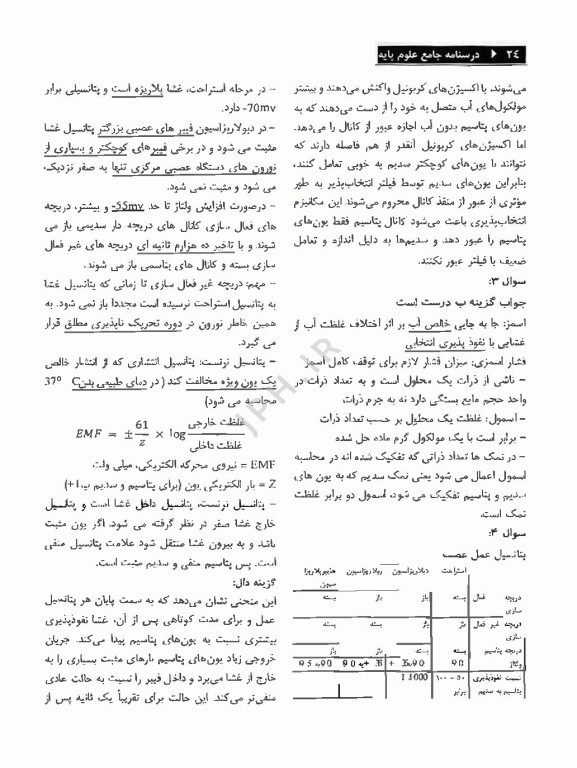 ۲۴ ◄ درسنامه جامع علوم پایه
می‌شوند. با اکسیژن‌های کربونیل واکنش می‌دهند و بیشتر
مولکول‌های آب متصل به خود را از دست می‌دهند که به
یون‌های پتاسیم بدون آب اجازه عبور از کانال را می‌دهد.
اما اکسیژن‌های کربونیل آنقدر از هم فاصله دارند که
نتوانند با یون‌های کوچکتر سدیم به خوبی تعامل کنند،
بنابراین یون‌های سدیم توسط فیلتر انتخاب‌پذیر به طور
مؤثری از عبور از منفذ کانال محروم می‌شوند. این مکانیزم
انتخاب‌پذیری باعث می‌شود کانال پتاسیم فقط یون‌های
پتاسیم را عبور دهد و سدیم‌ها به دلیل اندازه و تعامل
ضعیف با فیلتر عبور نکنند.
سوال ۳:
جواب گزینه ب درست است
اسمز: جا به جایی خالص آب بر اثر اختلاف غلظت آب از
غشایی با نفوذ پذیری انتخابی
فشار اسمزی: میزان فشار لازم برای توقف کامل اسمز
– ناشی از ذرات یک محلول است و به تعداد ذرات در
واحد حجم مایع بستگی دارد نه به جرم ذرات
– اسمول: غلظت یک محلول بر حسب تعداد ذرات
– برابر است با یک مولکول گرم ماده حل شده
– در نمک ها تعداد ذراتی که تفکیک شده اند در محاسبه
اسمول اعمال می شود یعنی نمک سدیم که به یون های
سدیم و پتاسیم تفکیک می شود، اسمول دو برابر غلظت
نمک است.
سوال ۴:
پتانسیل عمل عصب
استراحت دپلاریزاسیون رپلاریزاسیون هیپرپلاریزا
سیون
دریچه فعال بسته باز باز بسته
سازی
دریچه غیر فعال باز باز بسته بسته
سازی
دریچه پتاسیم بسته بسته باز باز
ولتاژ
نسبت نفوذپذیری ۵۰ – ۱۰۰
پتاسیم به سدیم برابر
– در مرحله استراحت، غشا پلاریزه است و پتانسیلی برابر
-70mv دارد.
– در دپولاریزاسیون فیبر های عصبی بزرگتر پتانسیل غشا
مثبت می شود و در برخی فیبرهای کوچکتر و بسیاری از
نورون های دستگاه عصبی مرکزی تنها به صفر نزدیک،
می شود و مثبت نمی شود.
– درصورت افزایش ولتاژ تا حد -55mv و بیشتر، دریچه
های فعال سازی کانال های دریچه دار سدیمی باز می
شوند و با تاخیر ده هزارم ثانیه ای دریچه های غیر فعال
سازی بسته و کانال های پتاسمی باز می شوند.
– مهم: دریچه غیر فعال سازی تا زمانی که پتانسیل غشا
به پتانسیل استراحت نرسیده است مجددا باز نمی شود. به
همین خاطر نورون در دوره تحریک ناپذیری مطلق قرار
می گیرد.
– پتانسیل نرنست: پتانسیل انتشاری که از انتشار خالص
یک یون ویژه مخالفت کند ( در دمای طبیعی بدن 37° C
محاسبه می شود)
EMF = ± 61/z × log غلظت خارجی/غلظت داخلی
EMF = نیروی محرکه الکتریکی، میلی ولت
Z = بار الکتریکی یون (برای پتاسیم و سدیم ب1+)
– پتانسیل نرنست، پتانسیل داخل غشا است و پتانسیل
خارج غشا صفر در نظر گرفته می شود. اگر یون مثبت
باشد و به بیرون غشا منتقل شود علامت پتانسیل منفی
است. پس پتاسیم منفی و سدیم مثبت است.
گزینه دال:
این منحنی نشان می‌دهد که به سمت پایان هر پتانسیل
عمل و برای مدت کوتاهی پس از آن، غشا نفوذپذیری
بیشتری نسبت به یون‌های پتاسیم پیدا می‌کند. جریان
خروجی زیاد یون‌های پتاسیم بارهای مثبت بسیاری را به
خارج از غشا می‌برد و داخل فیبر را نسبت به حالت عادی
منفی‌تر می‌کند. این حالت برای تقریباً یک ثانیه پس از
JPH.IR